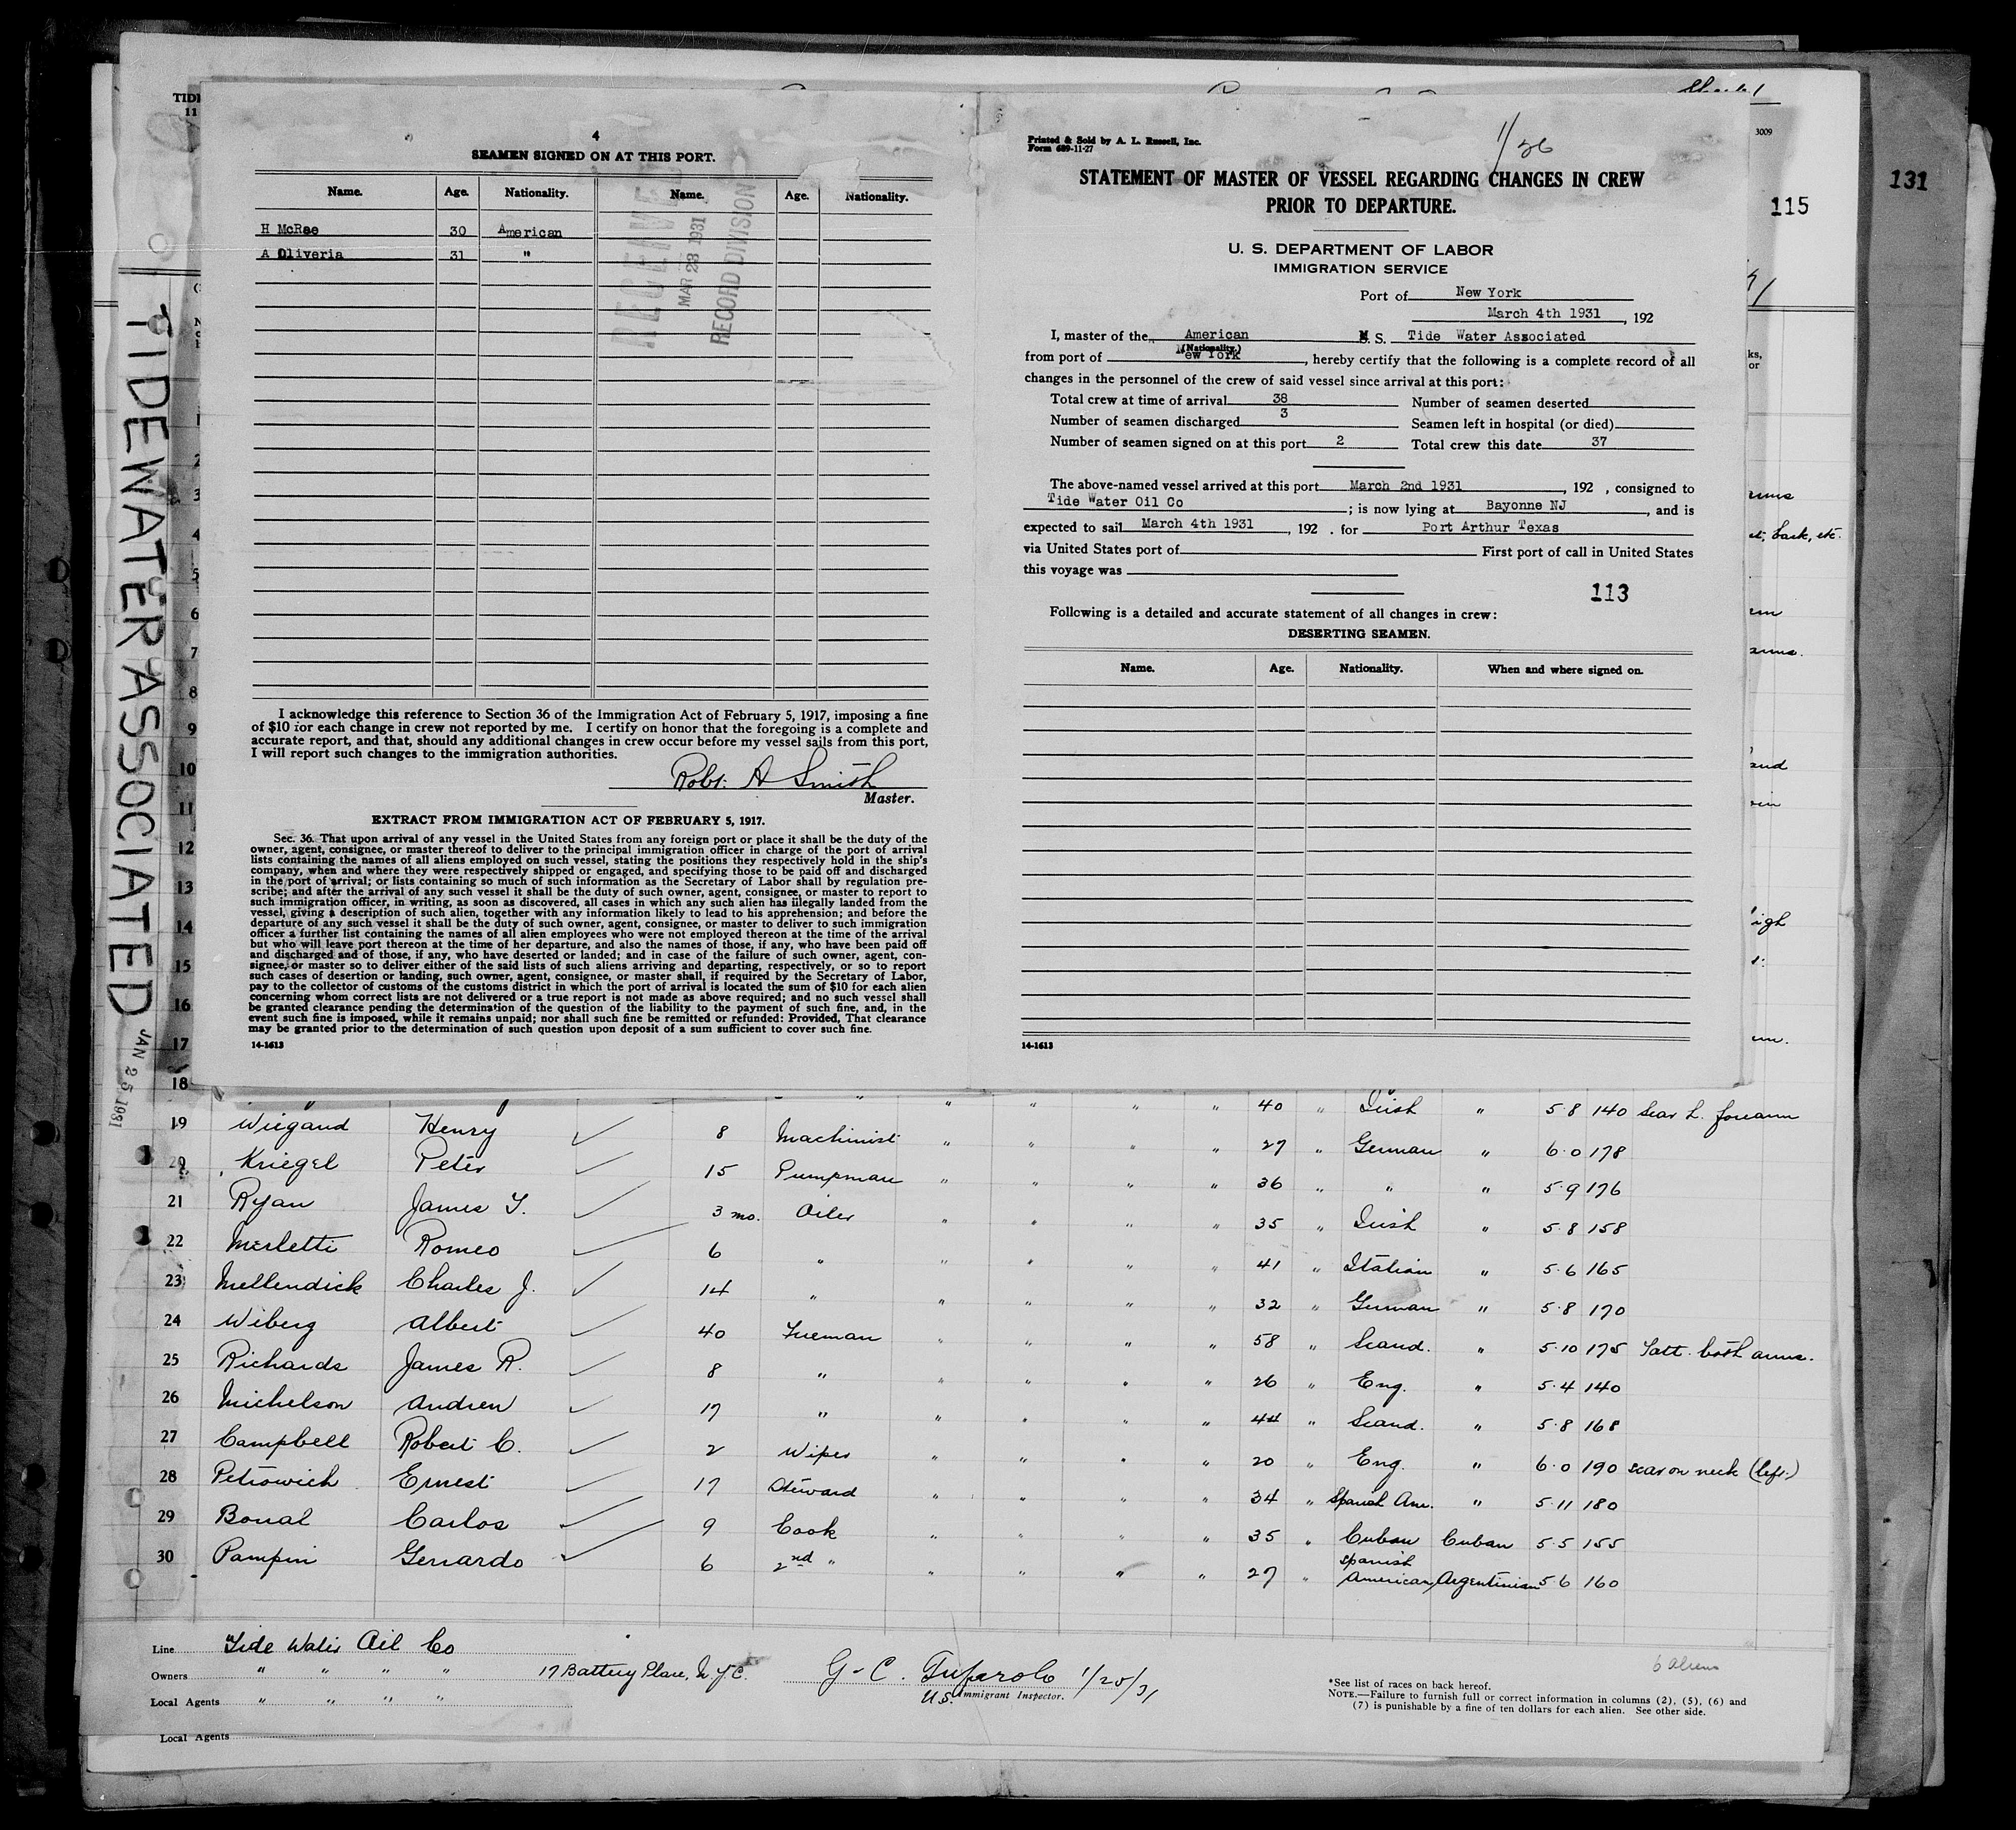 TIDEWATER ASSOCIATED
JAN 25 1931
131
115
3009
4
SEAMEN SIGNED ON AT THIS PORT.
Name. Age. Nationality. Name. Age. Nationality.
H McRae 30 American
A Oliveria 31 "
RECEIVED
MAR 23 1931
RECORD DIVISION
I acknowledge this reference to Section 36 of the Immigration Act of February 5, 1917, imposing a fine
of $10 for each change in crew not reported by me. I certify on honor that the foregoing is a complete and
accurate report, and that, should any additional changes in crew occur before my vessel sails from this port,
I will report such changes to the immigration authorities.
Robt. A Smith
Master.
EXTRACT FROM IMMIGRATION ACT OF FEBRUARY 5, 1917.
Sec. 36. That upon arrival of any vessel in the United States from any foreign port or place it shall be the duty of the
owner, agent, consignee, or master thereof to deliver to the principal immigration officer in charge of the port of arrival
lists containing the names of all aliens employed on such vessel, stating the positions they respectively hold in the ship's
company, when and where they were respectively shipped or engaged, and specifying those to be paid off and discharged
in the port of arrival; or lists containing so much of such information as the Secretary of Labor shall by regulation pre-
scribe; and after the arrival of any such vessel it shall be the duty of such owner, agent, consignee, or master to report to
such immigration officer, in writing, as soon as discovered, all cases in which any such alien has illegally landed from the
vessel, giving a description of such alien, together with any information likely to lead to his apprehension; and before the
departure of any such vessel it shall be the duty of such owner, agent, consignee, or master to deliver to such immigration
officer a further list containing the names of all alien employees who were not employed thereon at the time of the arrival
but who will leave port thereon at the time of her departure, and also the names of those, if any, who have been paid off
and discharged and of those, if any, who have deserted or landed; and in case of the failure of such owner, agent, con-
signee, or master so to deliver either of the said lists of such aliens arriving and departing, respectively, or so to report
such cases of desertion or landing, such owner, agent, consignee, or master shall, if required by the Secretary of Labor,
pay to the collector of customs of the customs district in which the port of arrival is located the sum of $10 for each alien
concerning whom correct lists are not delivered or a true report is not made as above required; and no such vessel shall
be granted clearance pending the determination of the question of the liability to the payment of such fine, and, in the
event such fine is imposed, while it remains unpaid; nor shall such fine be remitted or refunded: Provided, That clearance
may be granted prior to the determination of such question upon deposit of a sum sufficient to cover such fine.
14-1613
Printed & Sold by A. L. Russell, Inc.
Form 689-11-27
1/26
STATEMENT OF MASTER OF VESSEL REGARDING CHANGES IN CREW
PRIOR TO DEPARTURE.
U. S. DEPARTMENT OF LABOR
IMMIGRATION SERVICE
Port of New York
March 4th 1931, 192
I, master of the American M S. Tide Water Associated
(Nationality.)
from port of New York, hereby certify that the following is a complete record of all
changes in the personnel of the crew of said vessel since arrival at this port:
Total crew at time of arrival 38 Number of seamen deserted
Number of seamen discharged 3 Seamen left in hospital (or died)
Number of seamen signed on at this port 2 Total crew this date 37
The above-named vessel arrived at this port March 2nd 1931, 192 , consigned to
Tide Water Oil Co; is now lying at Bayonne NJ, and is
expected to sail March 4th 1931, 192 . for Port Arthur Texas
via United States port of First port of call in United States
this voyage was
113
Following is a detailed and accurate statement of all changes in crew:
DESERTING SEAMEN.
Name. Age. Nationality. When and where signed on.
14-1613
1
2
3
4
5
6
7
8
9
10
11
12
13
14
15
16
17
18
" " " " 40 " Irish " 5.8 140 Scar L. forearm
19 Wiegand Henry 8 Machinist " " " " 27 " German " 6.0 178
20 Kriegel Peter 15 Pumpman " " " " 36 " " " 5.9 176
21 Ryan James T. 3 mo. Oiler " " " " 35 " Irish " 5.8 158
22 Merletti Romeo 6 " " " " " 41 " Italian " 5.6 165
23 Mellendick Charles J. 14 " " " " " 32 " German " 5.8 170
24 Wiberg Albert 40 Fireman " " " " 58 " Scand. " 5.10 175 Tatt. both arms.
25 Richards James R. 8 " " " " " 26 " Eng. " 5.4 140
26 Michelson Andrew 17 " " " " " 44 " Scand. " 5.8 168
27 Campbell Robert C. 2 Wiper " " " " 20 " Eng. " 6.0 190 scar on neck (left.)
28 Petrowich Ernest 17 Steward " " " " 34 " Spanish Am. " 5.11 180
29 Bonal Carlos 9 Cook " " " " 35 " Cuban Cuban 5.5 155
30 Pampin Gerrardo 6 2nd " " " " " 27 " Spanish American Argentinian 5.6 160
Line Tide Water Oil Co
Owners " " " " 17 Battery Place, N.Y.C.
Local Agents " " " "
1/25/31
U.S. Immigrant Inspector.
6 Aliens
*See list of races on back hereof.
NOTE.—Failure to furnish full or correct information in columns (2), (5), (6) and
(7) is punishable by a fine of ten dollars for each alien. See other side.
Local Agents